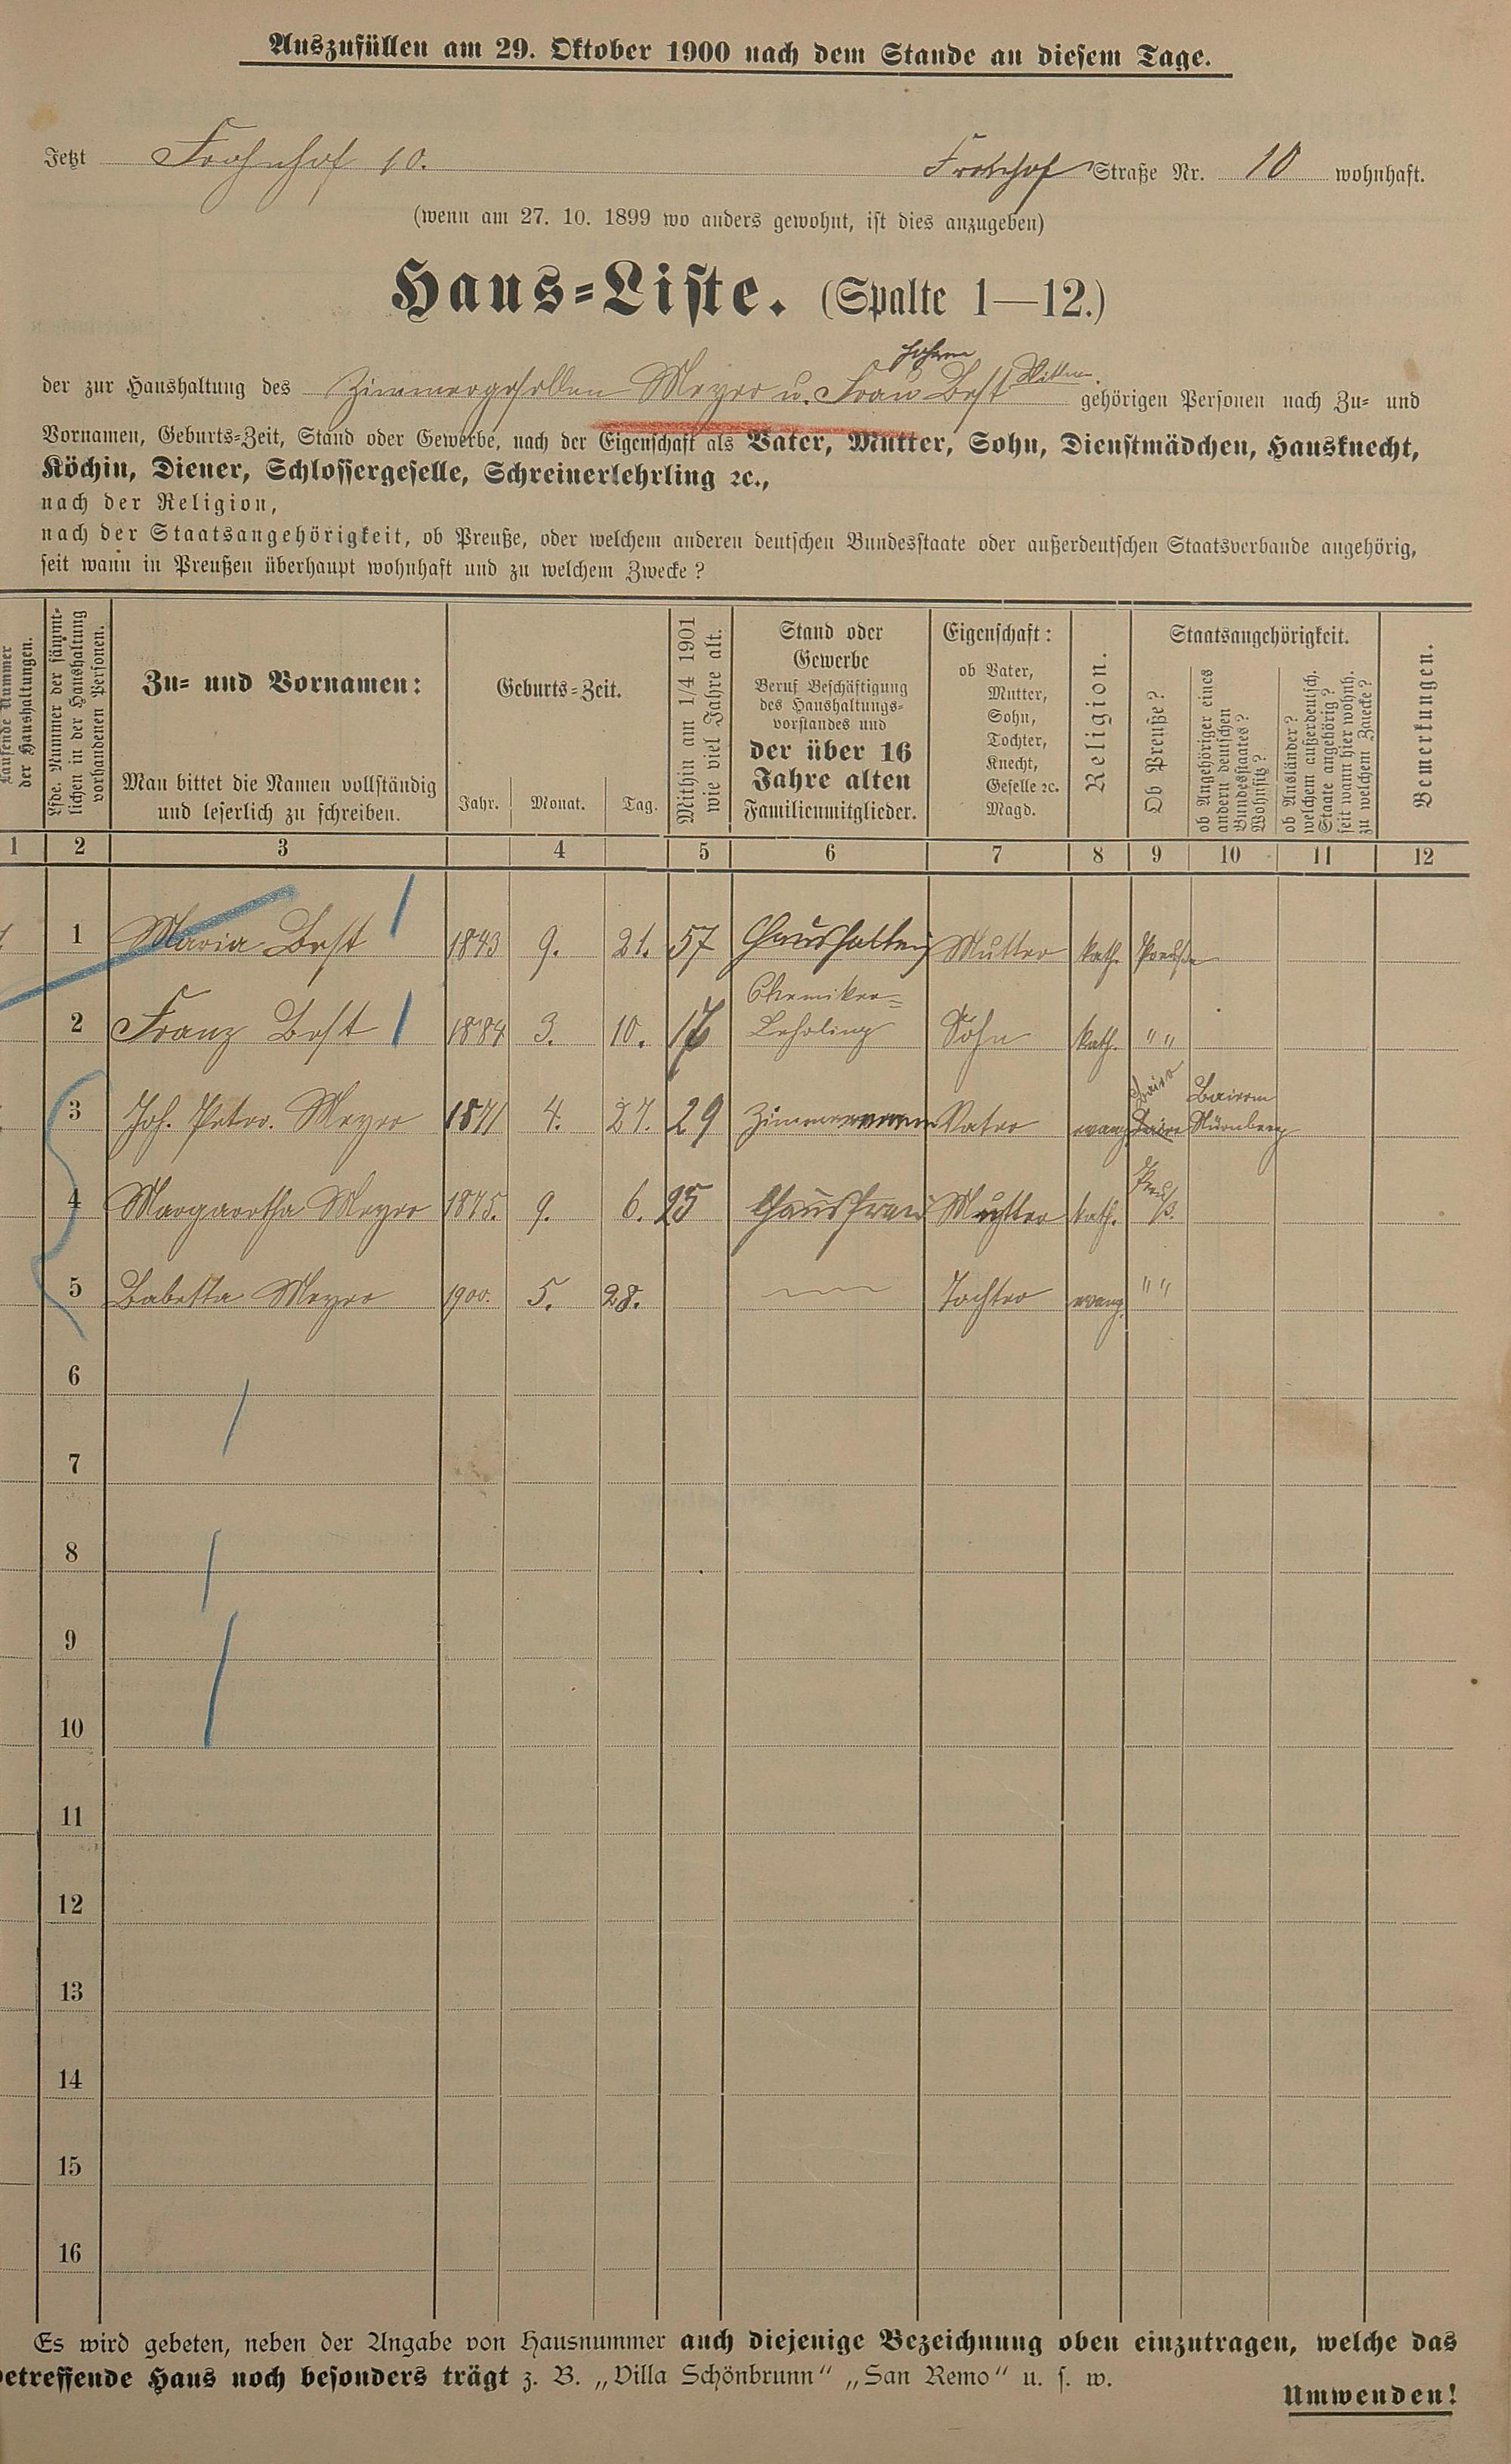 Auszufüllen am 29. Oktober 1900 nach dem Stande an diesem Tage.
Jetzt Frohnhof 10. Frohnhof Straße Nr. 10 wohnhaft.
(wenn am 27. 10. 1899 wo anders gewohnt, ist dies anzugeben)
Haus-Liste. (Spalte 1—12.)
Johann
der zur Haushaltung des Zimmergesellen Meyer u. Frau Best Witwe. gehörigen Personen nach Zu- und
Vornamen, Geburts-Zeit, Stand oder Gewerbe, nach der Eigenschaft als Vater, Mutter, Sohn, Dienstmädchen, Hausknecht,
Köchin, Diener, Schlossergeselle, Schreinerlehrling ꝛc.,
nach der Religion,
nach der Staatsangehörigkeit, ob Preuße, oder welchem anderen deutschen Bundesstaate oder außerdeutschen Staatsverbande angehörig,
seit wann in Preußen überhaupt wohnhaft und zu welchem Zwecke?
Laufende Nummer
der Haushaltungen.
Lfde. Nummer der sämmt-
lichen in der Haushaltung
vorhandenen Personen.
Zu- und Vornamen:
Man bittet die Namen vollständig
und leserlich zu schreiben.
Geburts-Zeit.
Jahr. Monat. Tag.
Mithin am 1/4 1901
wie viel Jahre alt.
Stand oder
Gewerbe
Beruf Beschäftigung
des Haushaltungs-
vorstandes und
der über 16
Jahre alten
Familienmitglieder.
Eigenschaft:
ob Vater,
Mutter,
Sohn,
Tochter,
Knecht,
Geselle ꝛc.
Magd.
Religion.
Staatsangehörigkeit.
Ob Preuße?
ob Angehöriger eines
andern deutschen
Bundesstaates?
Wohnsitz?
ob Ausländer?
welchem außerdeutsch.
Staate angehörig?
seit wann hier wohnh.
zu welchem Zwecke?
Bemerkungen.
1 2 3 4 5 6 7 8 9 10 11 12
1 Maria Best 1843 9. 21. 57 Haushaltung Mutter kath. Preuße
Chemiker=
2 Franz Best 1884 3. 10. 17 Lehrling Sohn kath. " "
Baiern
3 Joh. Peter. Meyer 1871 4. 27. 29 Zimmermann Vater evang. Nürnberg
4 Margaretha Meyer 1875. 9. 6. 25 Hausfrau Mutter kath. Preuß.
5 Babetta Meyer 1900. 5. 28. Tochter evang. " "
6
7
8
9
10
11
12
13
14
15
16
Es wird gebeten, neben der Angabe von Hausnummer auch diejenige Bezeichnung oben einzutragen, welche das
betreffende Haus noch besonders trägt z. B. „Villa Schönbrunn" „San Remo" u. s. w.
Umwenden!